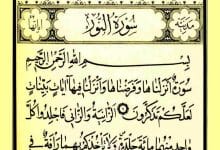 سُورَةُ النُّورِ
بِسْمِ اللَّهِ الرَّحْمَٰنِ الرَّحِيمِ
سُورَةٌ أَنْزَلْنَاهَا وَفَرَضْنَاهَا وَأَنْزَلْنَا فِيهَا آيَاتٍ بَيِّنَاتٍ
لَعَلَّكُمْ تَذَكَّرُونَ الزَّانِيَةُ وَالزَّانِي فَاجْلِدُوا كُلَّ
وَاحِدٍ مِنْهُمَا مِائَةَ جَلْدَةٍ وَلَا تَأْخُذْكُمْ بِهِمَا رَأْفَةٌ فِي